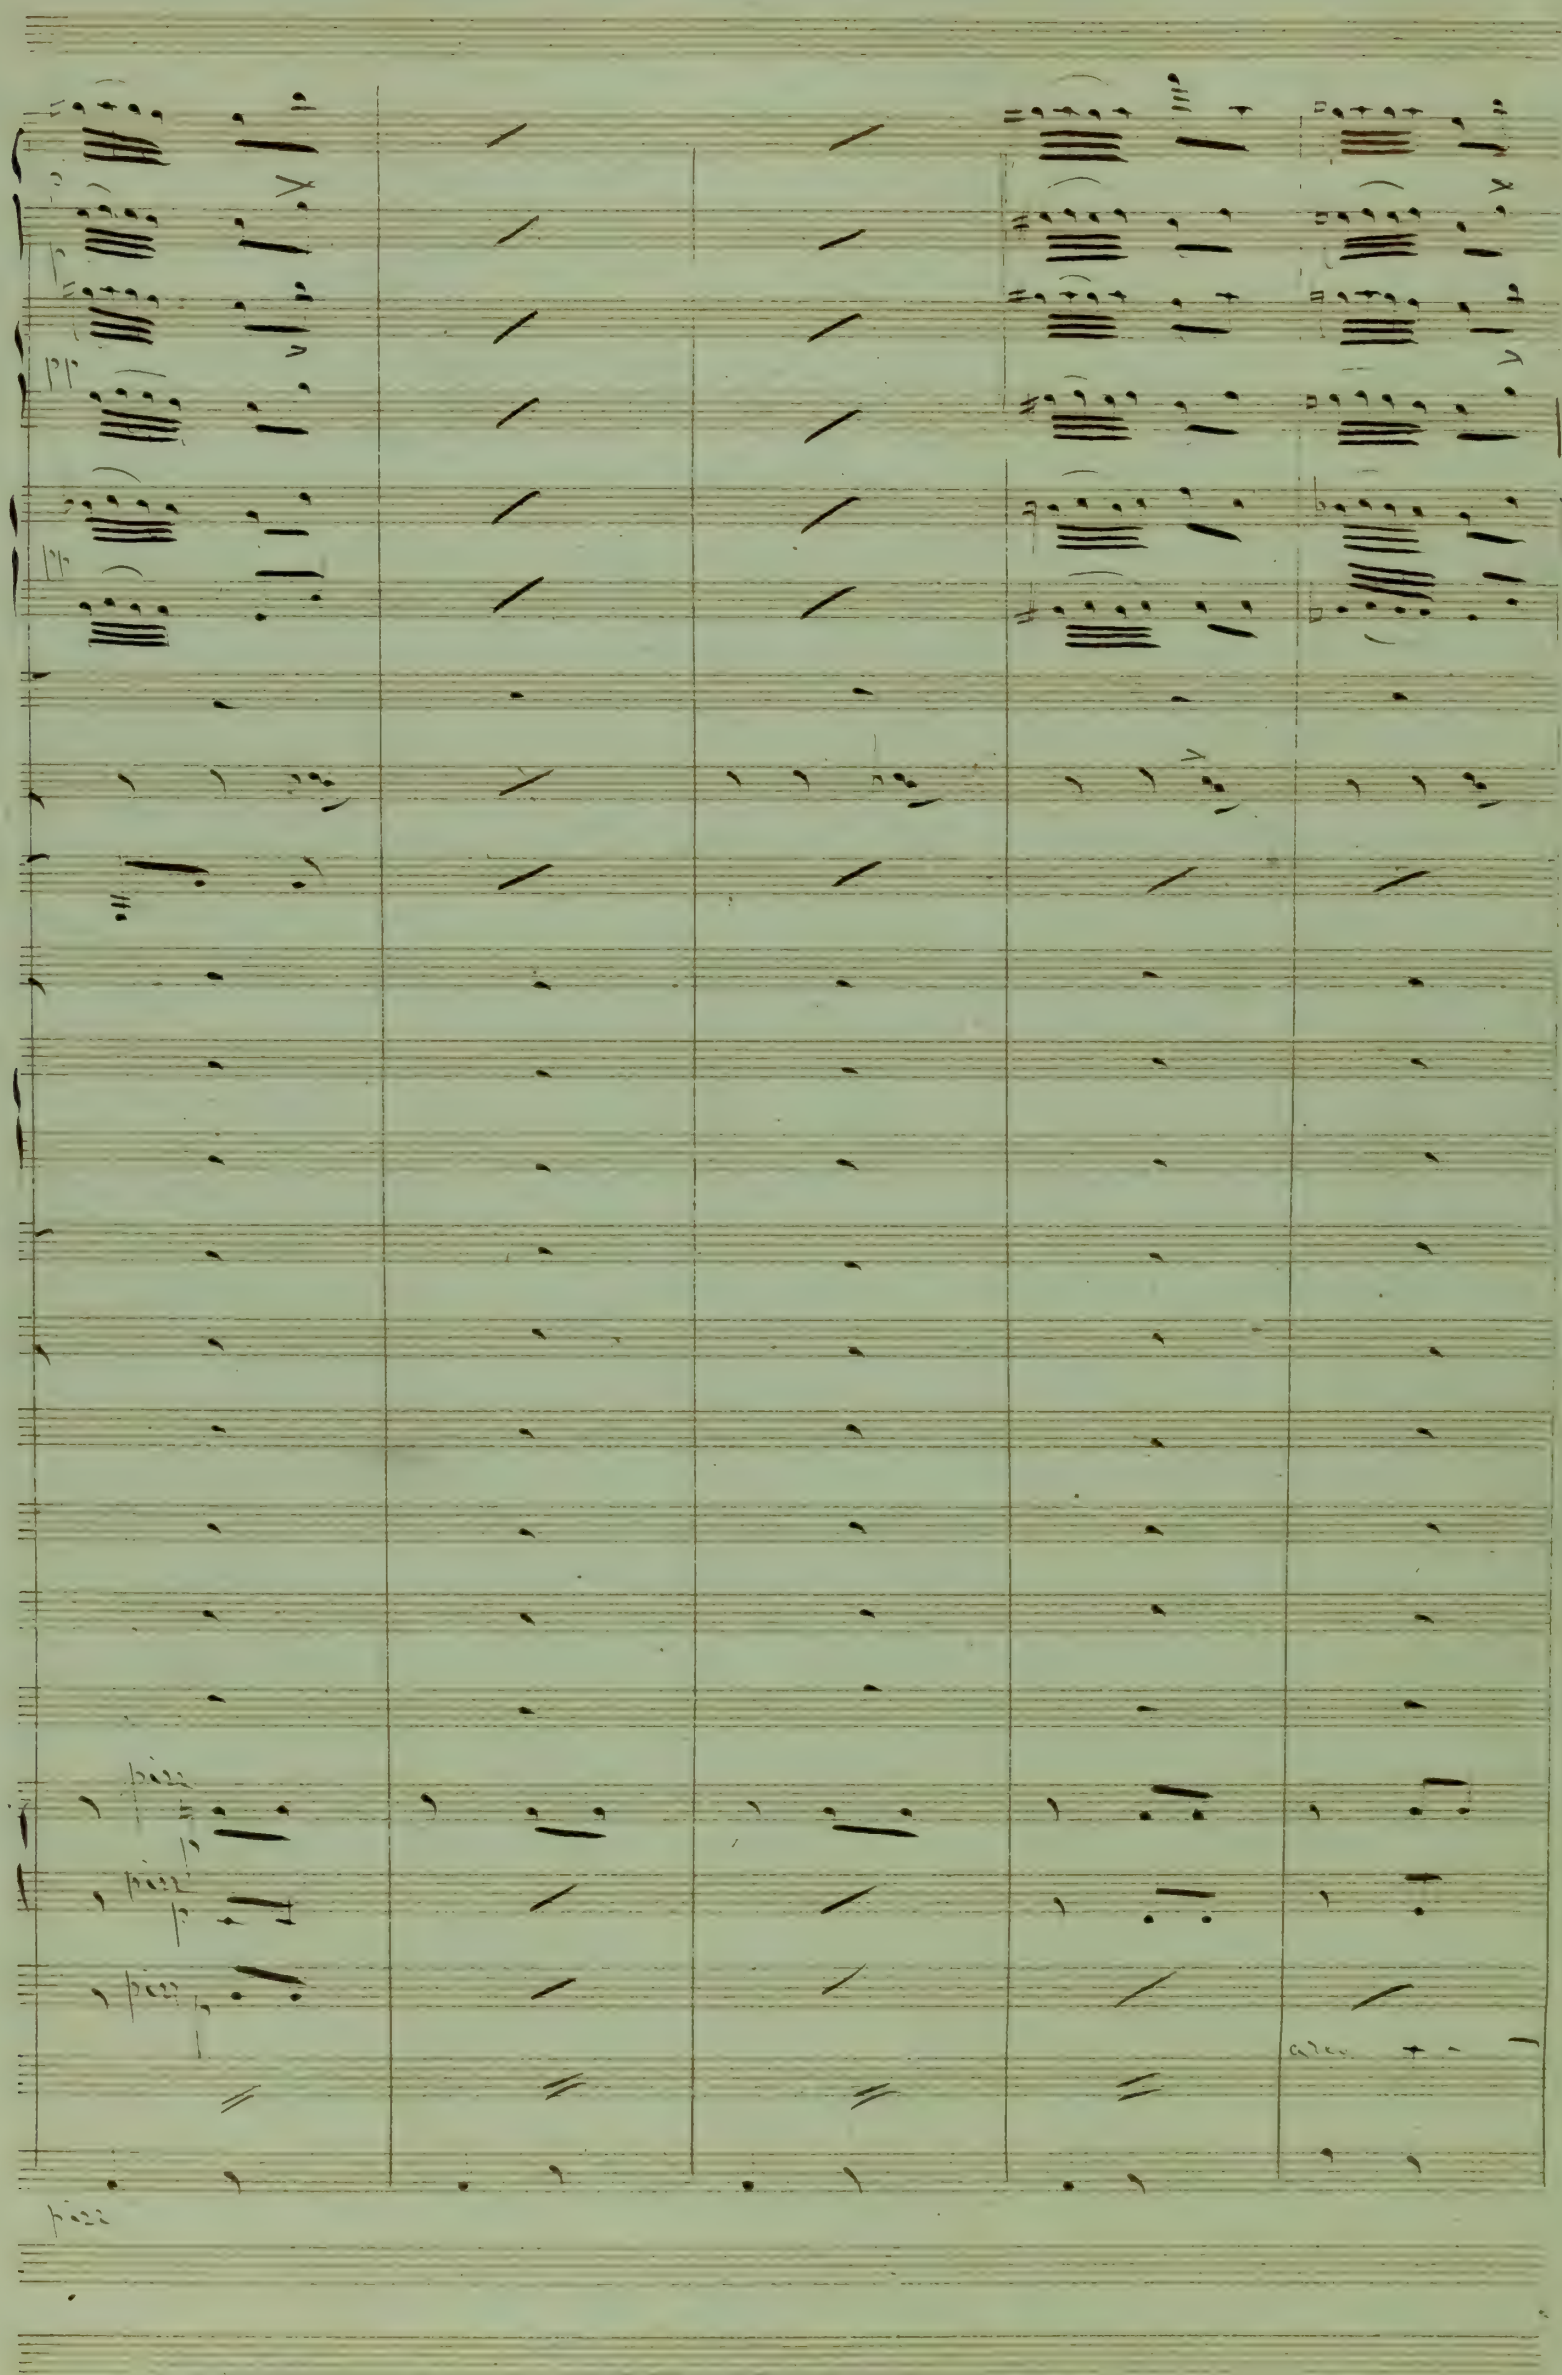 p
pp
pp
pizz
p
pizz
p
pizz
p
arco
pizz